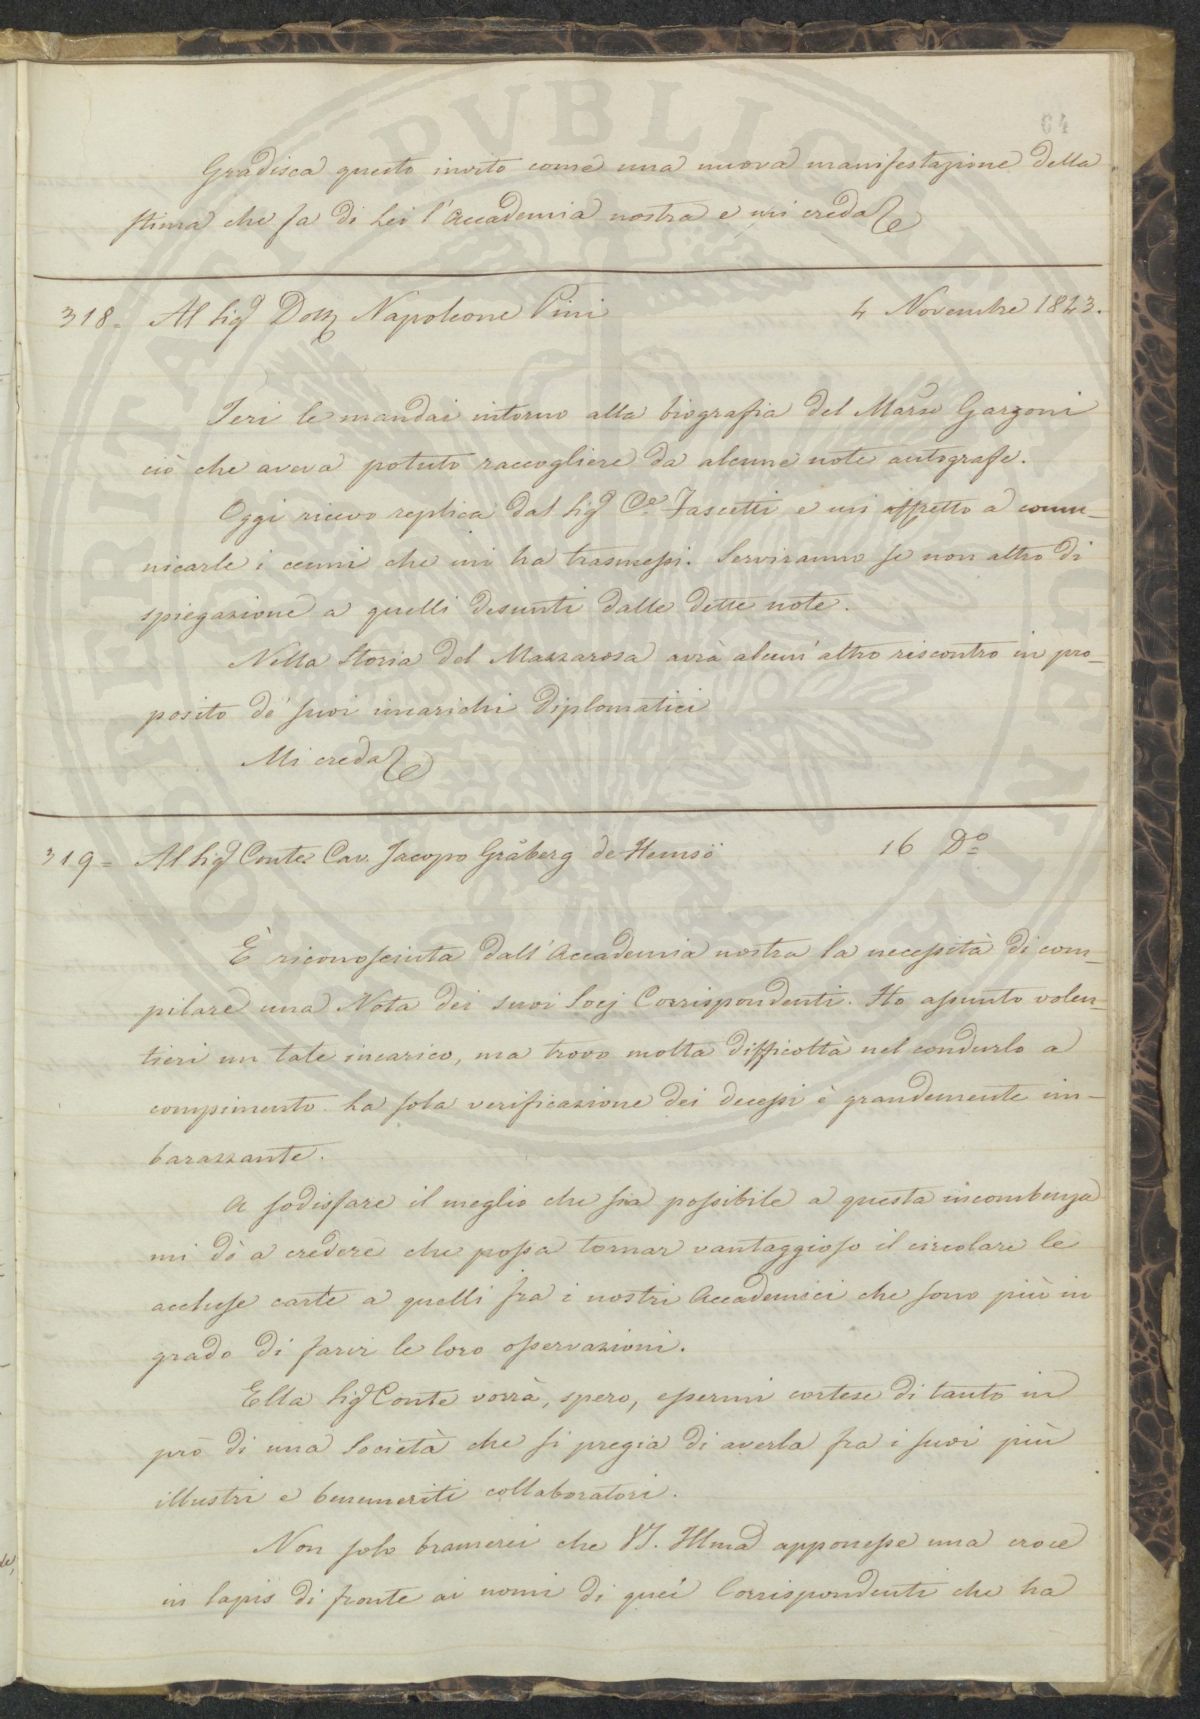 64
Gradisca questo invito come una nuova manifestazione della
stima che fa di Lei l'Accademia nostra e mi creda &
318. Al Sig.r Dott. Napoleone Pini 4 Novembre 1843.
Ieri le mandai intorno alla biografia del March.se Garzoni
ciò che aveva potuto raccogliere da alcune note autografe.
Oggi ricevo replica dal Sig.r C.e Fascetti e mi affretto a comu-
nicarle i cenni che mi ha trasmessi. Serviranno se non altro di
spiegazione a quelli desunti dalle dette note.
Nella Storia del Mazzarosa avrà alcun'altro riscontro in pro-
posito de' suoi incarichi diplomatici
Mi creda &
319= Al Sig.r Conte Cav. Jacopo Gråberg de Hemsö 16 D.o
È riconosciuta dall'Accademia nostra la necessità di com-
pilare una Nota dei suoi Socj Corrispondenti. Ho assunto volen-
tieri un tale incarico, ma trovo molta difficoltà nel condurlo a
compimento. La sola verificazione dei decessi è grandemente im-
barazzante.
A sodisfare il meglio che sia possibile a questa incombenza
mi dò a credere che possa tornar vantaggioso il circolare le
accluse carte a quelli fra i nostri Accademici che sono più in
grado di farvi le loro osservazioni.
Ella Sig.r Conte vorrà, spero, essermi cortese di tanto in
prò di una Società che si pregia di averla fra i suoi più
illustri e benemeriti collaboratori.
Non solo bramerei che VS. Illma apponesse una croce
in lapis di fronte ai nomi di quei Corrispondenti che ha